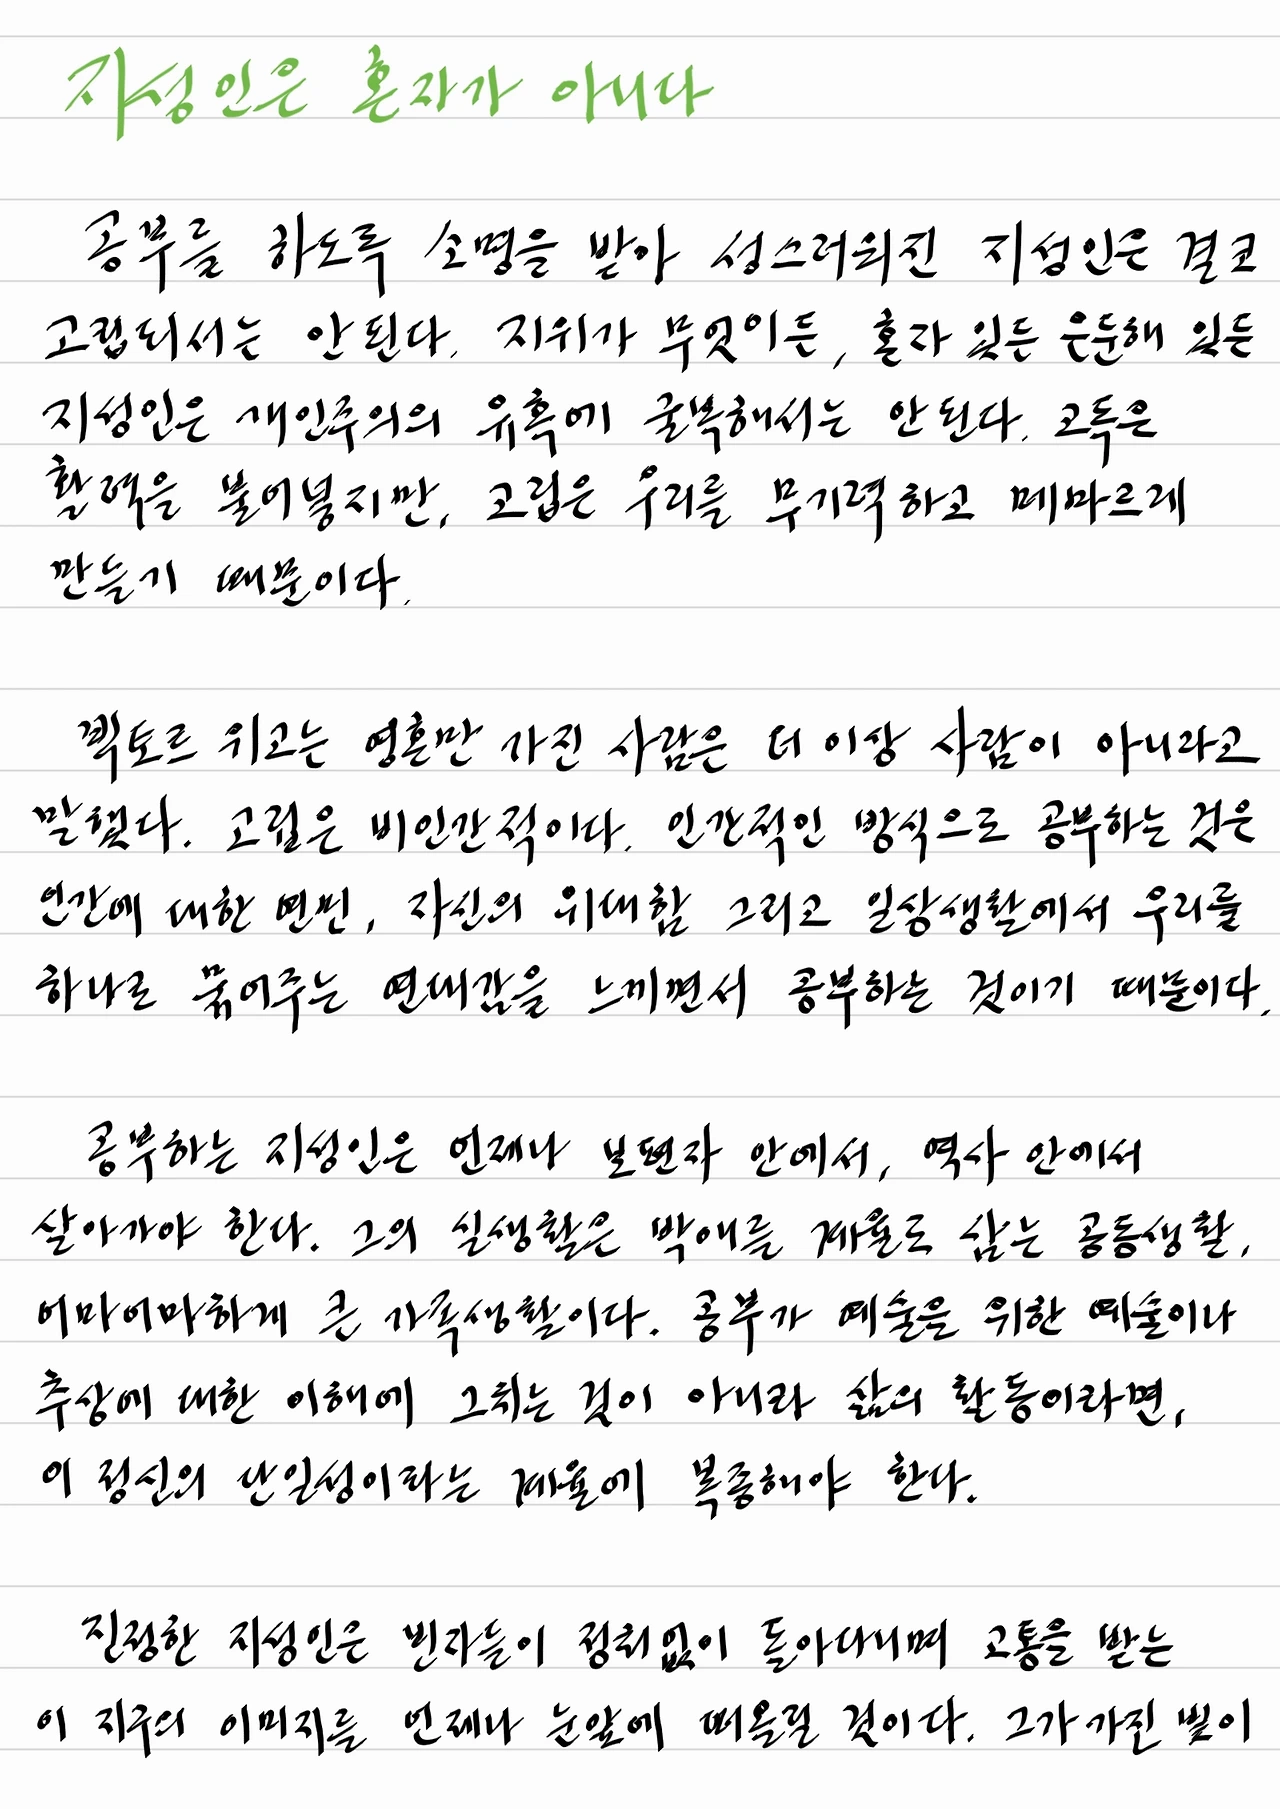 지성인은 혼자가 아니다
공부를 하도록 소명을 받아 성스러워진 지성인은 결코
고립되서는 안된다. 지위가 무엇이든, 혼자 있든 은둔해 있든
지성인은 개인주의의 유혹에 굴복해서는 안된다. 고독은
활력을 불어넣지만, 고립은 우리를 무기력하고 메마르게
만들기 때문이다.
빅토르 위고는 영혼만 가진 사람은 더 이상 사람이 아니라고
말했다. 고립은 비인간적이다. 인간적인 방식으로 공부하는 것은
인간에 대한 연민, 자신의 위대함 그리고 일상생활에서 우리를
하나로 묶어주는 연대감을 느끼면서 공부하는 것이기 때문이다.
공부하는 지성인은 언제나 보편자 안에서, 역사 안에서
살아가야 한다. 그의 실생활은 박애를 계율로 삼는 공동생활,
어마어마하게 큰 가족생활이다. 공부가 예술을 위한 예술이나
추상에 대한 이해에 그치는 것이 아니라 삶의 활동이라면,
이 정신의 단일성이라는 계율에 복종해야 한다.
진정한 지성인은 빈자들이 정처없이 돌아다니며 고통을 받는
이 지구의 이미지를 언제나 눈앞에 떠올릴 것이다. 그가 가진 빛이